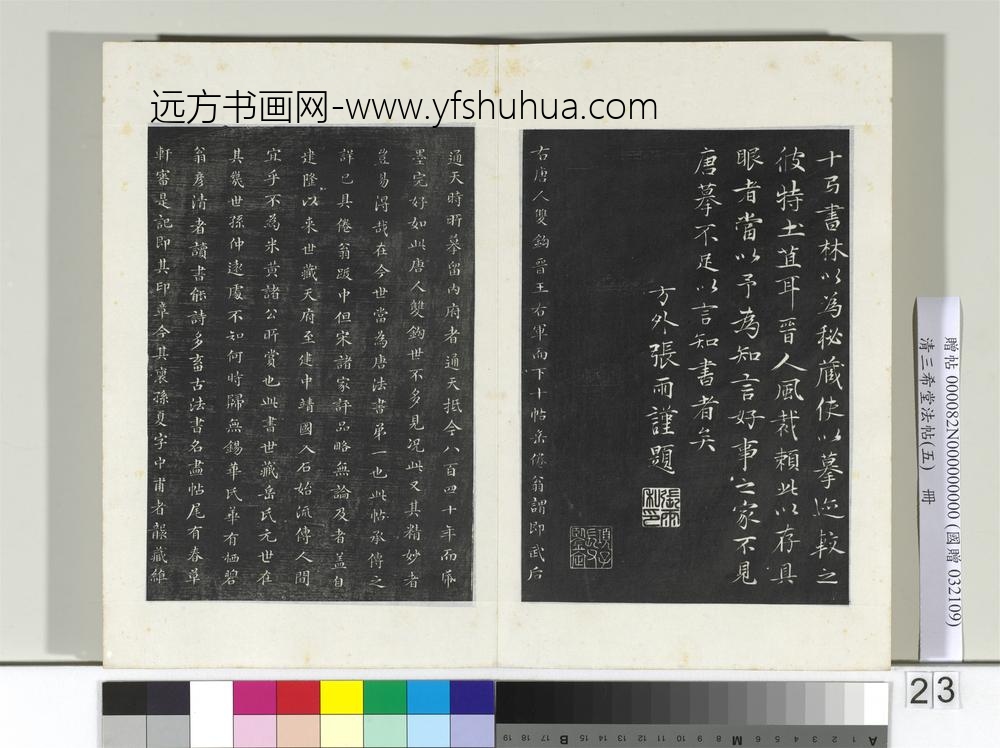 远方书画网-www.yfshuhua.com
书林以为秘藏使以摹迹较之
彼特土苴耳晋人风裁赖此以存具
眼者當以予為知言好事之家不見
唐摹不足以言知書者矣
方外張雨謹題
右唐人雙鈎晉王右軍而下十帖岳倦翁謂即武后
通天時所摹留內府者通天抵今八百四十年而紙
墨完好如此唐人雙鈎世不多見況此又其精妙者
豈易得哉在今世當為唐法書第一也此帖承傳之
詳已具倦翁跋中但宋諸家評品略無論及者盖自
建隆以來世藏天府至建中靖國入石始流傳人間
宜乎不為米黃諸公所賞也此書世藏岳氏元世在
其幾世孫仲遠處不知何時歸無錫華氏華有栖碧
翁彦清者讀書能詩多畜古法書名畫帖尾有春草
軒審是記即其印章今其裔孫夏字中甫者襲藏維
贈帖 000082N000000000 (國贈 032109)
清三希堂法帖(五) 冊
23